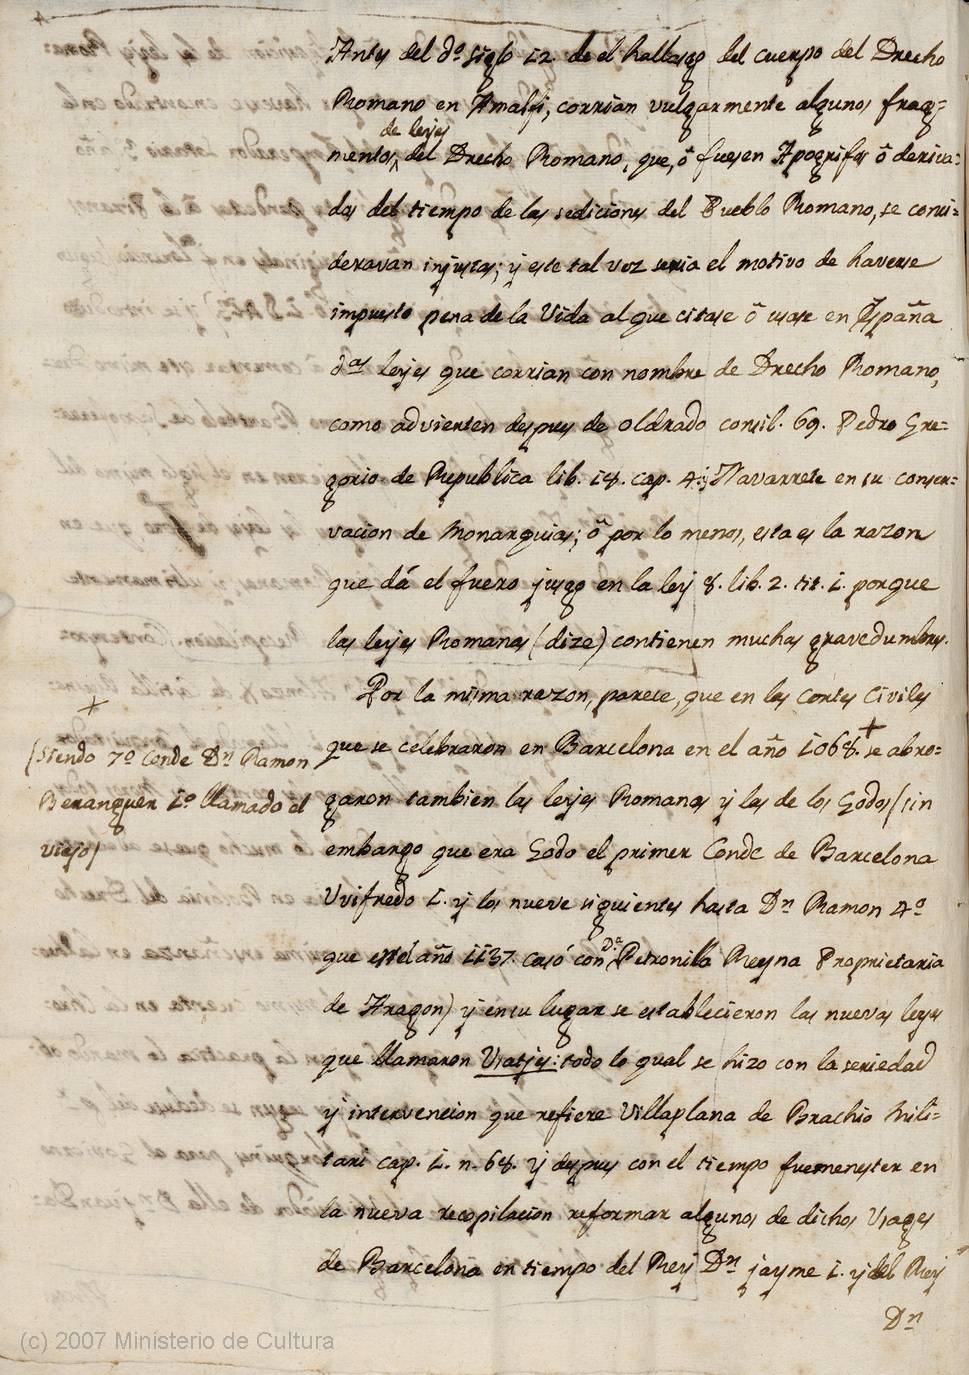 Antes del dº siglo 12. de el hallasgo del cuerpo del Drecho
Romano en Amalfi, corrian vulgarmente algunos frag=
de leyes
mentos, del Drecho Romano, que, ô fuesen Apogrifos ô deriva=
dos del tiempo de las sediciones del Pueblo Romano, se consi=
deravan injustas; y este tal vez seria el motivo de haverse
impuesto pena de la Vida al que citase ô usase en España
das leyes que corrian con nombre de Drecho Romano,
como advierten despues de Oldrado consil. 69. Pedro Gre=
gorio de Republica lib. 18. cap. 4. y Navarrete en su conser=
vacion de Monarquias; ô por lo menos, esta es la razon
que dá el fuero jusgo en la ley 8. lib. 2. tit. 1. porque
las leyes Romanas (dize) contienen muchas gravedumbres.
Por la misma razon, parece, que en las Cortes Civiles
que se celebraron en Barcelona en el año 1068. + se abro=
+
(siendo 7º Conde Dn Ramon
Beranguer 1º llamado el
viejo)
garon tambien las leyes Romanas y las de los Godos (sin
embargo que era Godo el primer Conde de Barcelona
Uvifredo 1. y los nueve siguientes hasta Dn Ramon 4º
que el año 1137. casó con Dª Petronilla Reyna Proprietaria
de Aragon) y en su lugar se establecieron las nuevas leyes
que llamaron Usatjes: todo lo qual se hizo con la seriedad
y intervencion que refiere Villaplana de Brachio Mili=
tari cap. 1. n. 68. y despues con el tiempo fue menester en
la nueva recopilacion reformar algunos de dichos Usages
de Barcelona en tiempo del Rey Dn Jayme 1. y del Rey
Dn
(c) 2007 Ministerio de Cultura